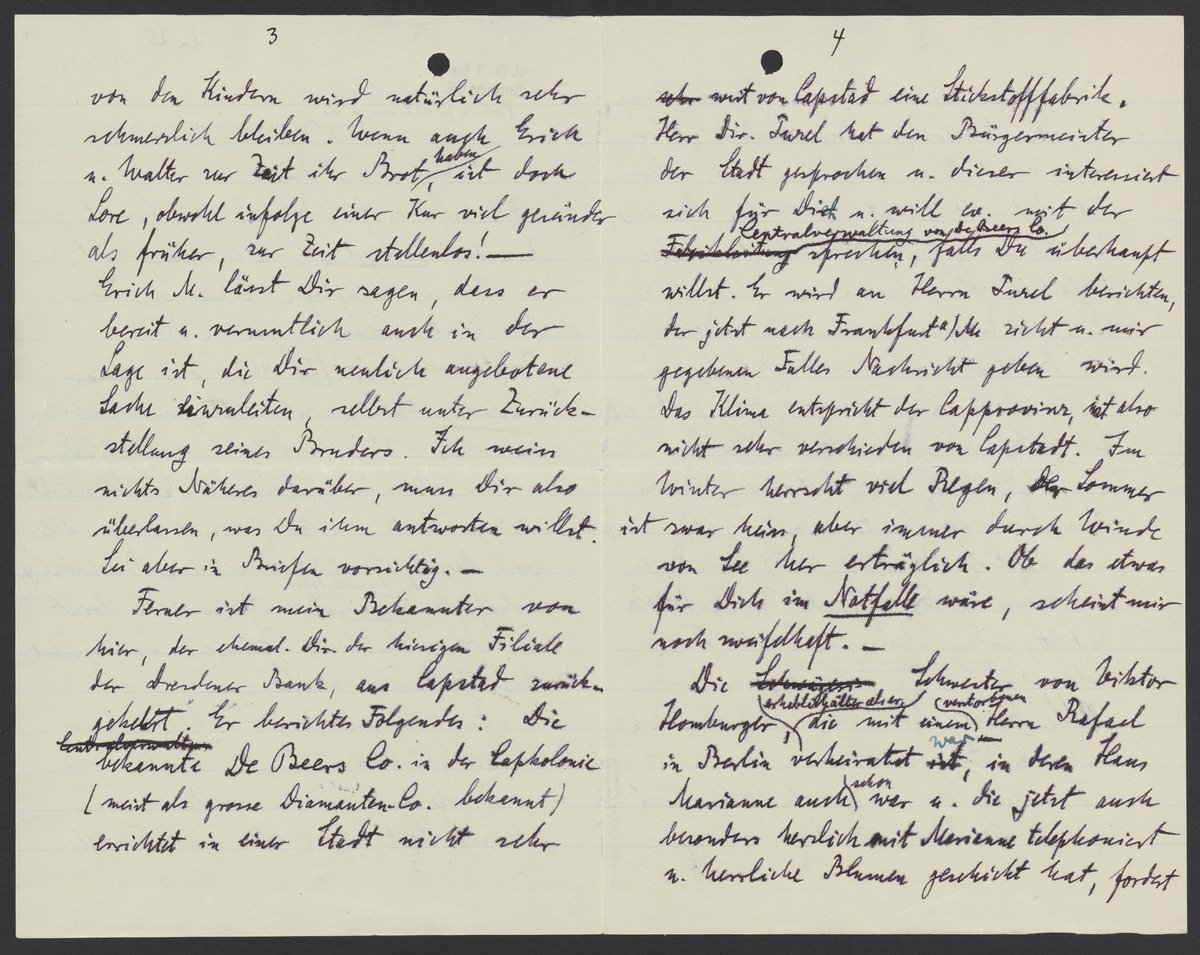 3
von den Kindern wird natürlich sehr
schmerzlich bleiben. Wenn auch Erich
u. Walter zur Zeit ihr Brot haben, ist doch
Lore, obwohl infolge einer Kur viel gesünder
als früher, zur Zeit stellenlos! —
Erich M. lässt Dir sagen, dass er
bereit u. vermutlich auch in der
Lage ist, die Dir neulich angebotene
Sache einzuleiten, selbst unter Zurück-
stellung seines Bruders. Ich weiss
nichts Näheres darüber, muss Dir also
überlassen, was Du ihm antworten willst.
Sei aber in Briefen vorsichtig. —
Ferner ist mein Bekannter von
hier, der ehemal. Dir. der hiesigen Filiale
der Dresdener Bank, aus Capstad zurück-
gekehrt. Er berichtet Folgendes: Die
Centralverwaltung
bekannte De Beers Co. in der Capkolonie
(meist als grosse Diamanten-Co. bekannt)
errichtet in einer Stadt nicht sehr
4
sehr weit von Capstad eine Stickstofffabrik.
Herr Dir. hat den Bürgermeister
der Stadt gesprochen u. dieser interessiert
sich für Dich u. will ev. mit der
Centralverwaltung von De Beers Co.
Fabrikleitung sprechen, falls Du überhaupt
willst. Er wird an Herrn berichten,
der jetzt nach Frankfurt a/M zieht u. mir
gegebenen Falles Nachricht geben wird.
Das Klima entspricht der Capprovinz, ist also
nicht sehr verschieden von Capstadt. Im
Winter herrscht viel Regen, der Sommer
ist zwar heiss, aber immer durch Winde
von See her erträglich. Ob das etwas
für Dich im Notfalle wäre, scheint mir
noch zweifelhaft. —
Die Schwägerin Schwester von Viktor
erheblich älter als er verstorbenen
Homburger, die mit einem Herrn Rafael
war
in Berlin verheiratet ist, in deren Haus
Marianne auch schon war u. die jetzt auch
besonders herzlich mit Marianne telephoniert
u. herrliche Blumen geschickt hat, fordert